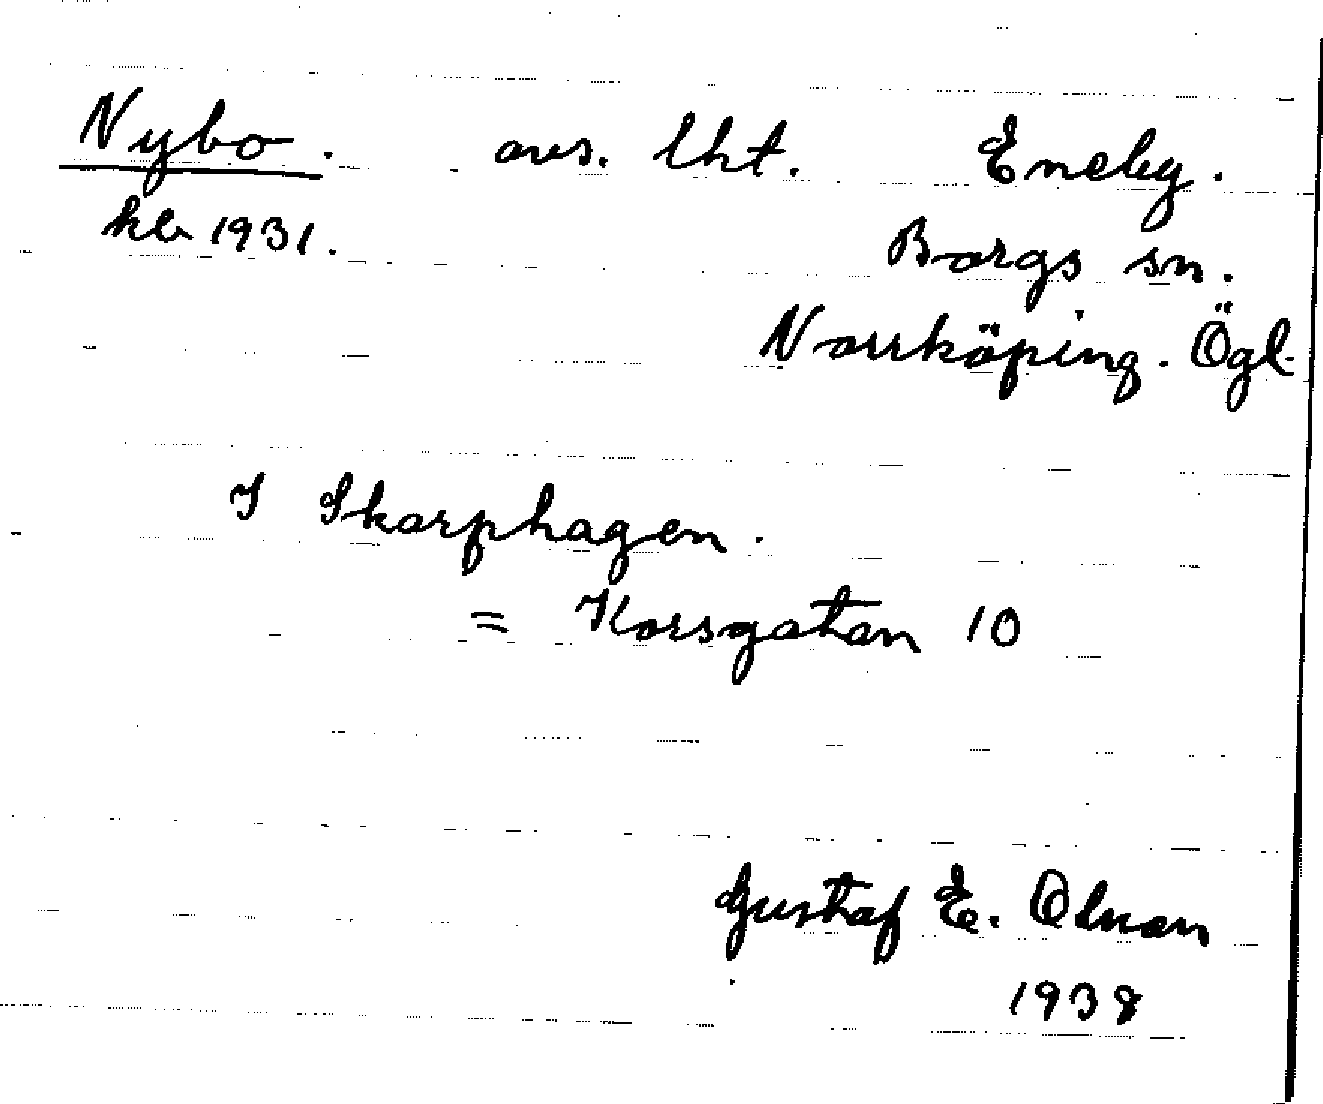 Nybo. avs. lht. Eneby.
kb 1931. Borgs sn.
Norrköping. Ögl.
I Skarphagen.
= Korsgatan 10
Gustaf E. Olman
1938